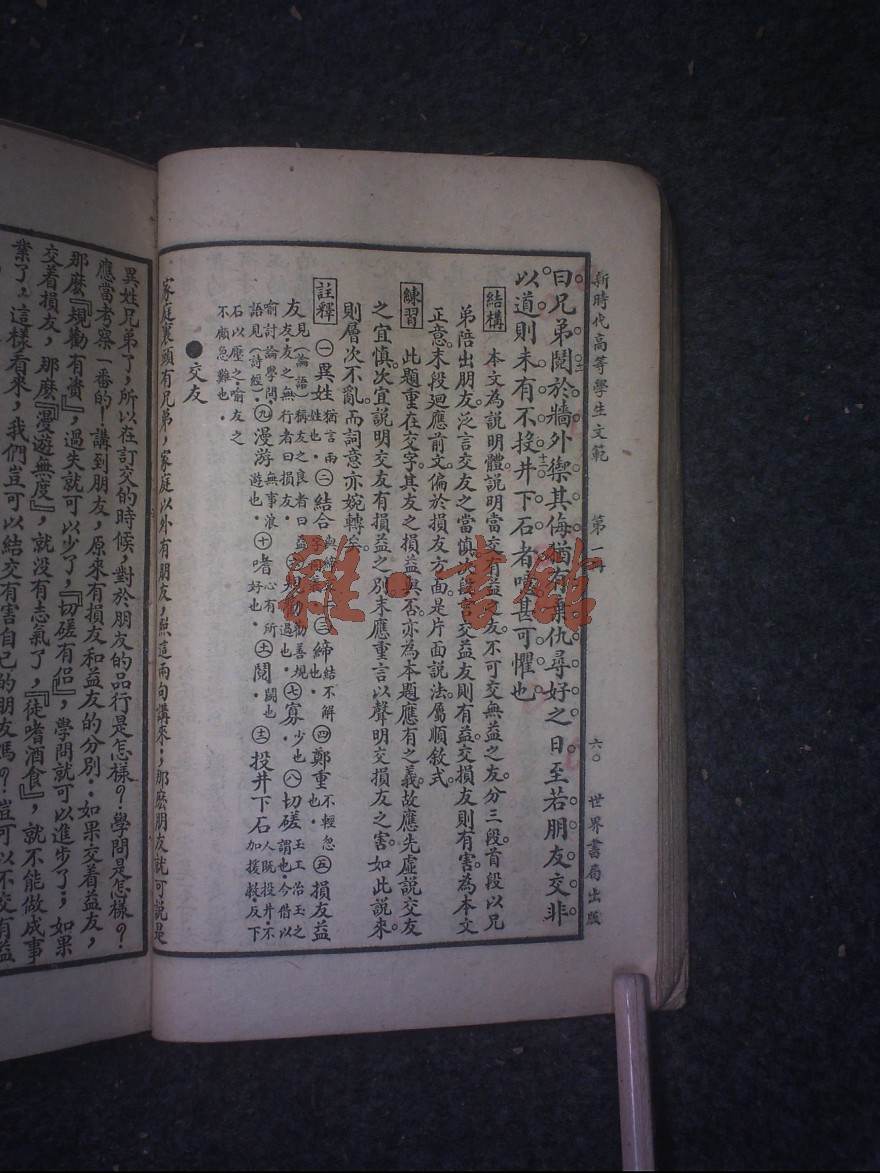 新時代高等學生文範 第一冊 六〇 世界書局出版
曰兄弟鬩於牆外禦其侮猶有棄仇尋好之日至若朋友交非
以道則未有不投井下石者噫甚可懼也
結構 本文為說明體說明當交有益之友不可交無益之友分三段首段以兄
弟陪出朋友泛言交友之當慎次段言交益友則有益交損友則有害為本文
正意末段迴應前文偏於損友方面是片面說法屬順敘式
練習 此題重在交字其友之損益與否亦為本題應有之義故應先虛說交友
之宜慎次宜說明交友有損益之別末應重言以聲明交損友之害如此說來
則層次不亂而詞意亦婉轉矣
註釋 ㊀異姓 猶言兩姓也 ㊁結合 ㊂締 結不解也 ㊃鄭重 不輕忽也 ㊄損友益
友 見(論語)稱友之良者曰益友友之無行者曰損友 ㊅規勸 勸善規過也 ㊆寡 少也 ㊇切磋 玉工治玉之謂也今借以
喻討論學問語見(詩經) ㊈漫游 無事浪遊也 ㊉嗜 心有所好也 (十一)鬩 鬪也 (十二)投井下石 人既投井不加援救反下
石以壓之喻友之不顧急難也
●交友
家庭裏頭有兄弟，家庭以外有朋友，照這兩句講來，那麽朋友就可說是
異姓兄弟了，所以在訂交的時候，對於朋友的品行是怎樣？學問是怎樣？
應當考察一番的！講到朋友，原來有損友和益友的分別：如果交着益友，
那麽『規勸有資』，過失就可以少了，『切磋有侶』，學問就可以進步了；如果
交着損友，那麽『漫遊無度』，就沒有志氣了，『徒嗜酒食』，就不能做成事
業了，這樣看來，我們豈可以結交有害自己的朋友嗎？豈可以不交有益
雅·書館